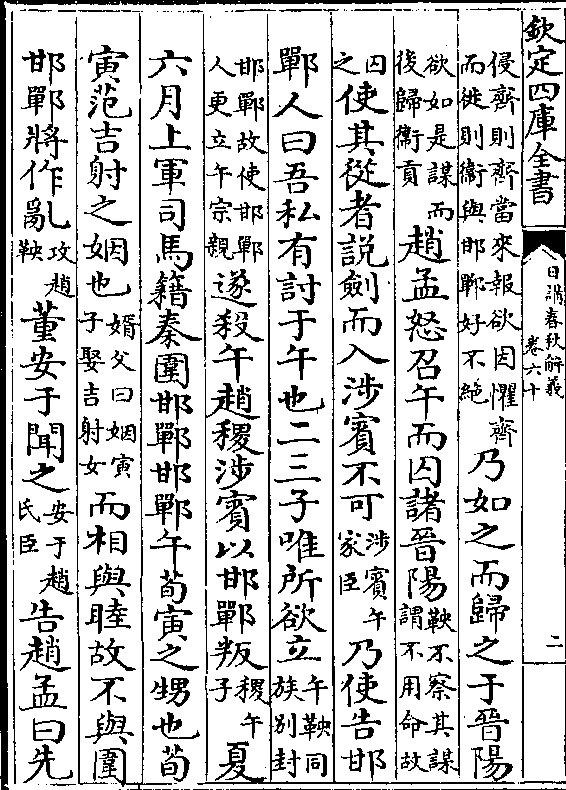 欽定四庫全書
日講春秋解義
卷六十
二
侵齊則齊當來報欲因懼齊而徙則衛與邯鄲好不絶乃如之而歸之于晉陽
欲如是謀而後歸衛貢趙孟怒召午而囚諸晉陽鞅不察其謀謂不用命故
囚之使其從者說劍而入涉賓不可涉賓午家臣乃使告邯
鄲人曰吾私有討于午也二三子唯所欲立午鞅同族別封
邯鄲故使邯鄲人更立午宗親遂殺午趙稷涉賓以邯鄲叛稷午子夏
六月上軍司馬籍秦圍邯鄲邯鄲午荀寅之甥也荀
寅范吉射之姻也婿父曰姻寅子娶吉射女而相與睦故不與圍
邯鄲將作亂攻趙鞅董安于聞之安于趙氏臣告趙孟曰先